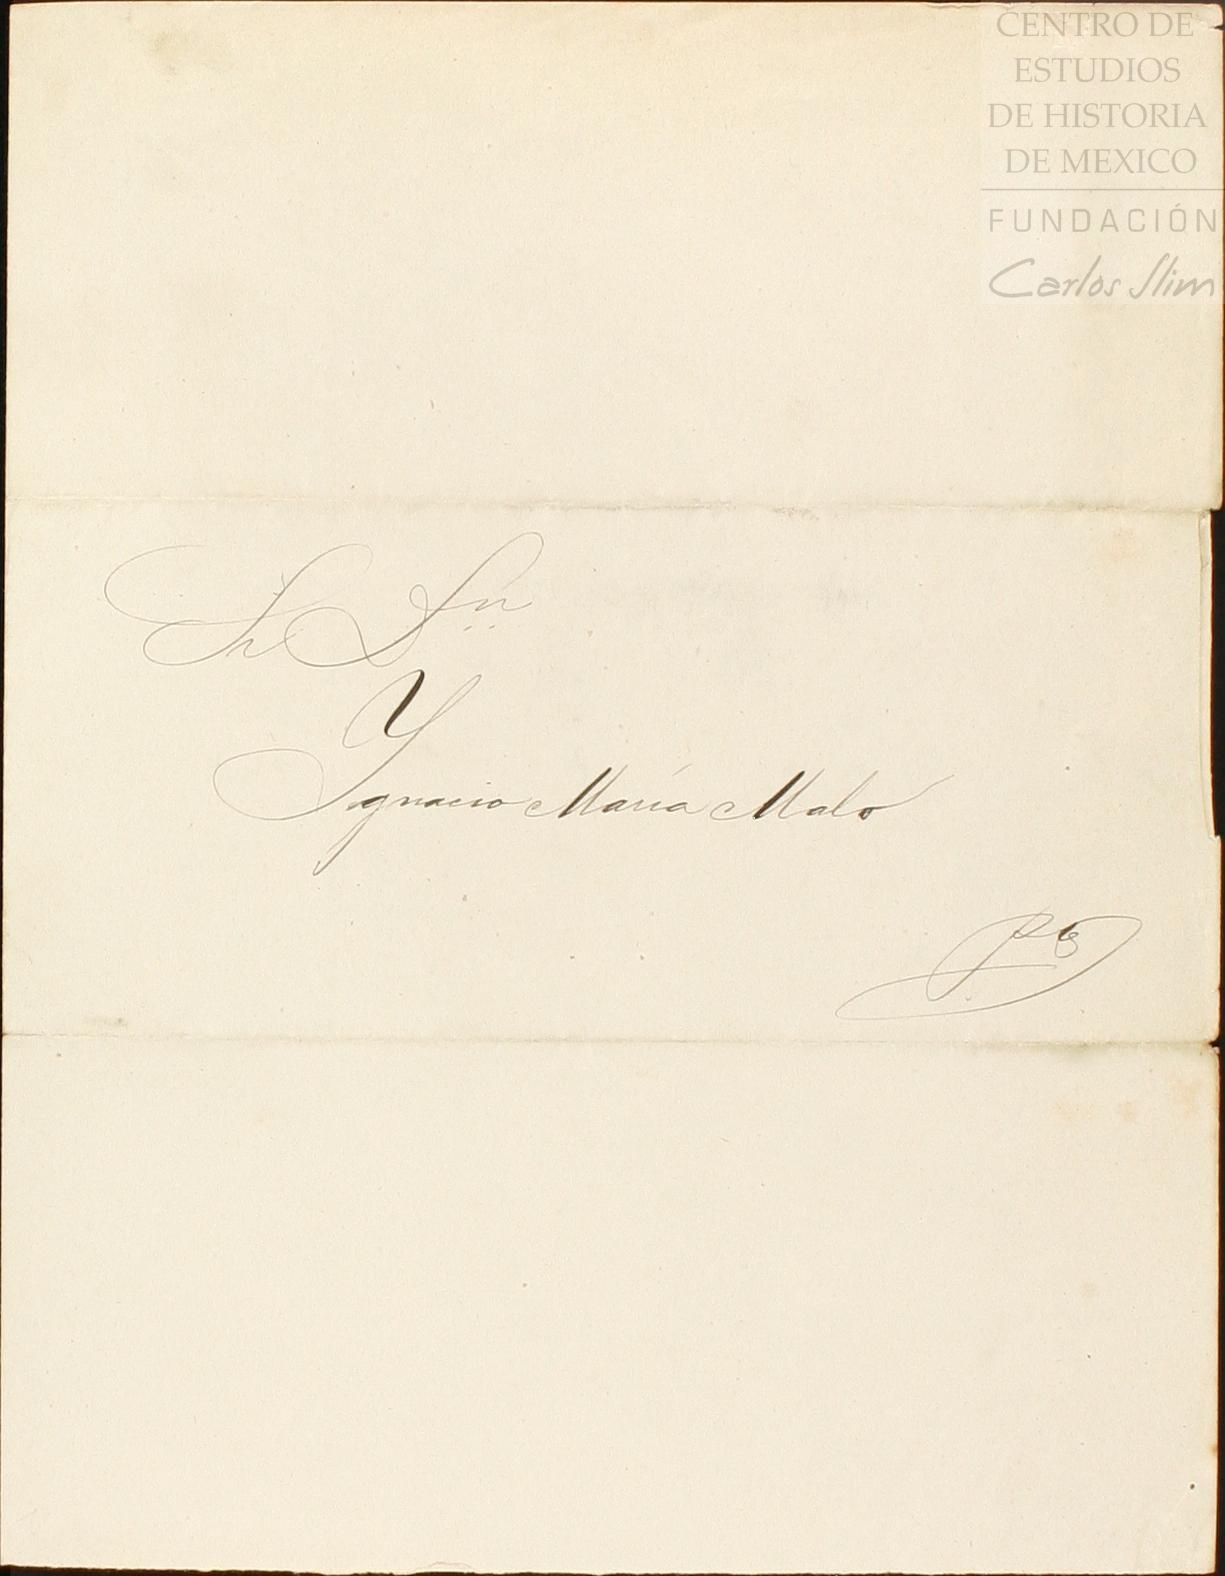 CENTRO DE
ESTUDIOS
DE HISTORIA
DE MEXICO
FUNDACIÓN
Carlos Slim
Sr Dn
Ygnacio María Malo